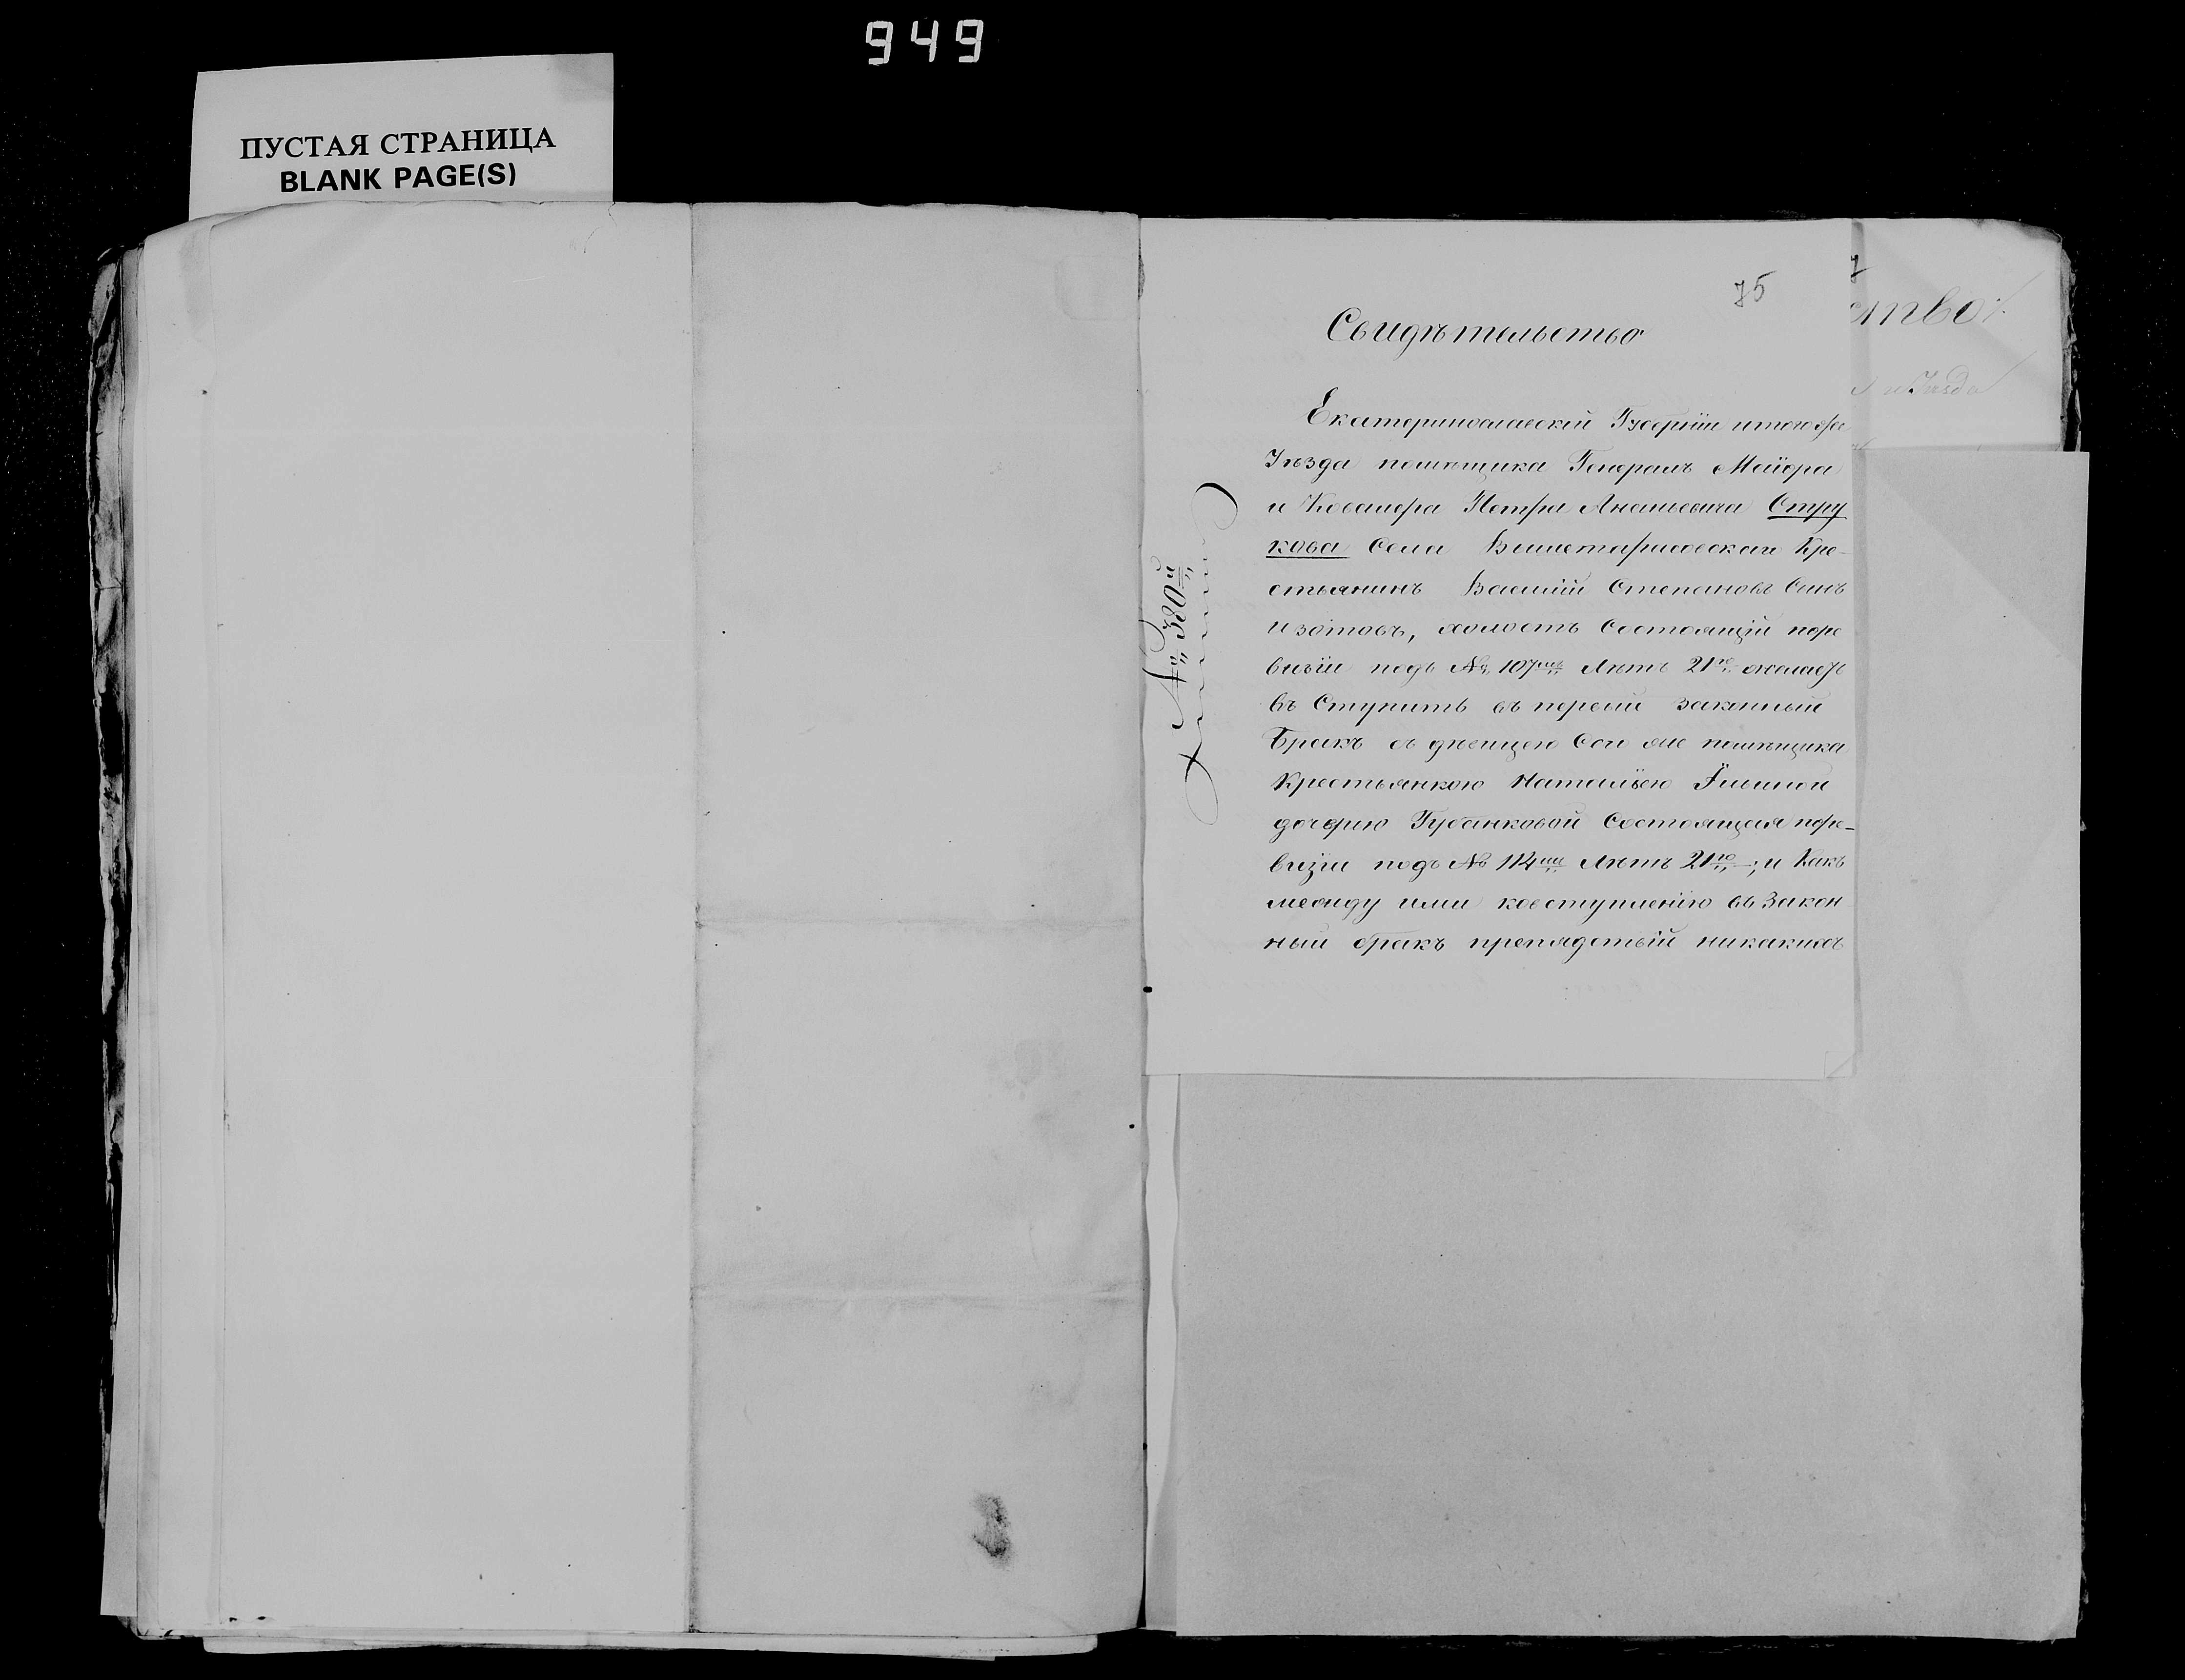 949
ПУСТАЯ СТРАНИЦА
BLANK PAGE(S)
75
Свидѣтельство
Екатеринославской Губерніи и того же
Уѣзда помѣщика Генералъ Маіора
и Кавалера Петра Ананьевича Стру
кова Села Вишетарасовскаго Кре-
стьянинъ Василій Степановъ Синъ
Изотовъ, холостъ Состоящій поре
визіи подъ № 107мъ Лѣтъ 21го желаетъ
въ Ступить въ первый законный
Бракъ съ дѣвицею Сего же помѣщика
Крестьянкою Наталіею
дочерью Губанковой Состоящая поре-
визіи подъ № 114мъ Лѣтъ 21го; и Какъ
между ими ковступленію въ Закон
ный бракъ препядствій никакихъ
№ 380й
ство